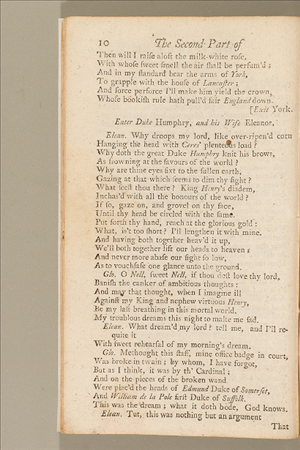 10 The Second Part of
Then will I raise aloft the milk-white rose,
With whose sweet smell the air shall be perfum'd;
And in my standard bear the arms of York,
To grapple with the house of Lancaster;
And force perforce I'll make him yield the crown,
Whose bookish rule hath pull'd fair England down.
[Exit York.
Enter Duke Humphry, and his Wife Eleanor.
Elean. Why droops my lord, like over-ripen'd corn
Hanging the head with Ceres' plenteous load?
Why doth the great Duke Humphry knit his brows,
As frowning at the favours of the world?
Why are thine eyes fixt to the sullen earth,
Gazing at that which seems to dim thy sight?
What seest thou there? King Henry's diadem,
Inchas'd with all the honours of the world?
If so, gaze on, and grovel on thy face,
Until thy head be circled with the same.
Put forth thy hand, reach at the glorious gold:
What, is't too short? I'll lengthen it with mine.
And having both together heav'd it up,
We'll both together lift our heads to heaven;
And never more abase our sight so low,
As to vouchsafe one glance unto the ground.
Glo. O Nell, sweet Nell, if thou dost love thy lord,
Banish the canker of ambitious thoughts:
And may that thought, when I imagine ill
Against my King and nephew virtuous Henry,
Be my last breathing in this mortal world.
My troublous dreams this night to make me sad.
Elean. What dream'd my lord? tell me, and I'll re-
quite it
With sweet rehearsal of my morning's dream.
Glo. Methought this staff, mine office badge in court,
Was broke in twain; by whom, I have forgot,
But as I think, it was by th' Cardinal;
And on the pieces of the broken wand
Were plac'd the heads of Edmund Duke of Somerset,
And William de la Pole first Duke of Suffolk.
This was the dream; what it doth bode, God knows.
Elean. Tut, this was nothing but an argument
That